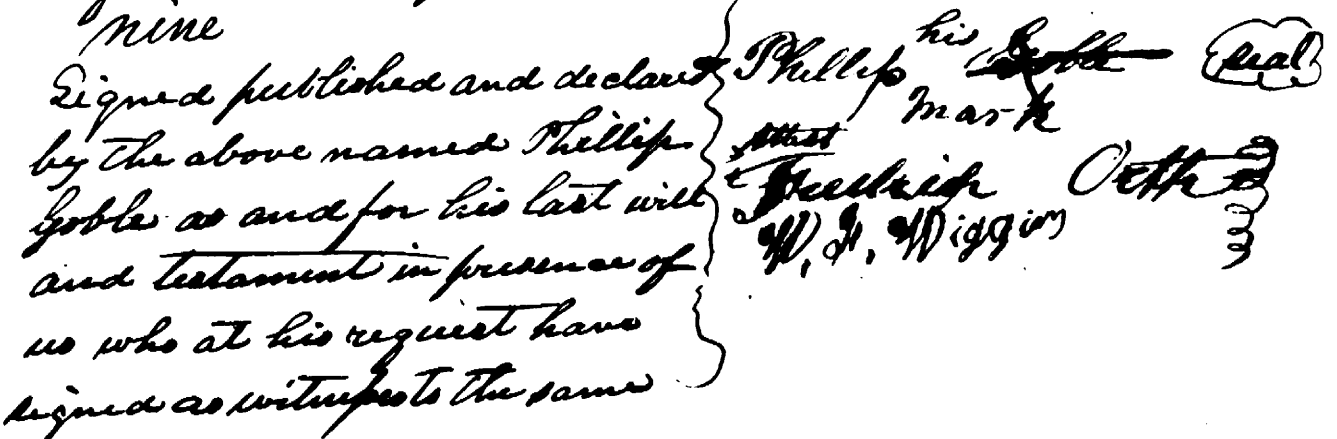 nine
Signed published and declared
by the above named Phillip
Goble as and for his last will
and testament in presence of
us who at his request have
signed as witness to the same
his
Phillip Goble seal
mark
Attest
Fredrich Orth
W. H. Wiggim